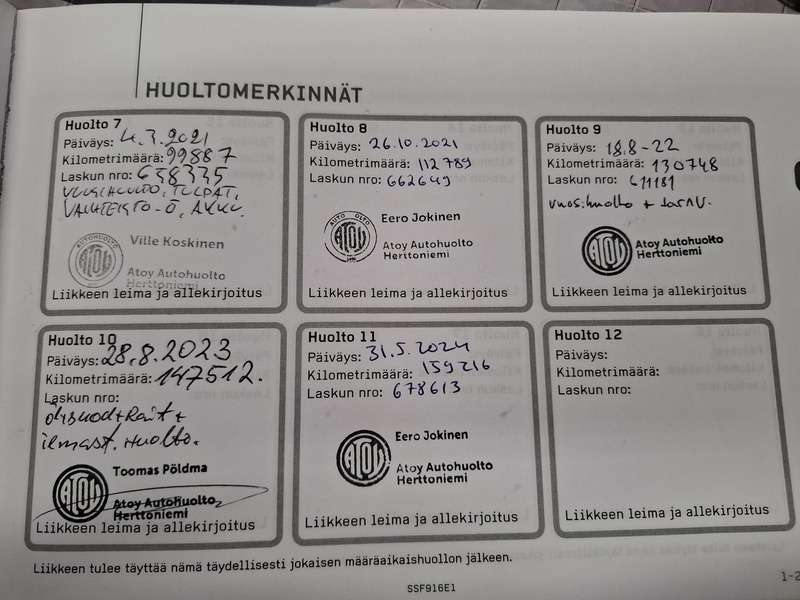 HUOLTOMERKINNÄT
Huolto 7
Päiväys: 4.3.2021
Kilometrimäärä: 99887
Laskun nro: 658335
VUOSIHUOLTO, TULPAT,
VAIHTEISTO-Ö, AKKU.
AUTOHUOLTO
ATOY
Ville Koskinen
Atoy Autohuolto
Herttoniemi
Liikkeen leima ja allekirjoitus
Huolto 8
Päiväys: 26.10.2021
Kilometrimäärä: 112789
Laskun nro: 662649
AUTO OLTO
ATOY
Eero Jokinen
Atoy Autohuolto
Herttoniemi
Liikkeen leima ja allekirjoitus
Huolto 9
Päiväys: 18.8-22
Kilometrimäärä: 130748
Laskun nro: 671181
vuosihuolto + jarru.
ATOY
Atoy Autohuolto
Herttoniemi
Liikkeen leima ja allekirjoitus
Huolto 10
Päiväys: 28.8.2023
Kilometrimäärä: 147512.
Laskun nro:
ilmast. Huolto.
ATOY
Toomas Pöldma
Atoy Autohuolto
Herttoniemi
Liikkeen leima ja allekirjoitus
Huolto 11
Päiväys: 31.5.2024
Kilometrimäärä: 159216
Laskun nro: 678613
ATOY
Eero Jokinen
Atoy Autohuolto
Herttoniemi
Liikkeen leima ja allekirjoitus
Huolto 12
Päiväys:
Kilometrimäärä:
Laskun nro:
Liikkeen leima ja allekirjoitus
Liikkeen tulee täyttää nämä täydellisesti jokaisen määräaikaishuollon jälkeen.
SSF916E1
1-2